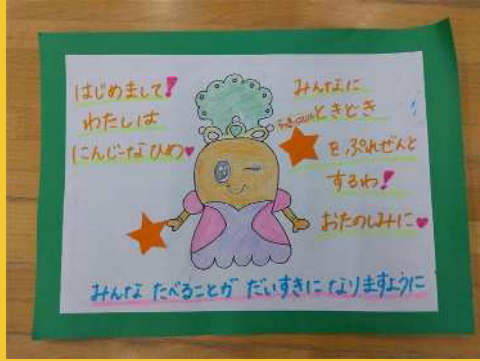 はじめまして!
わたしは
にんじーなひめ♥
みんなに
らっきーにんじん ときどき
を ぷれぜんと
するわ!
おたのしみに♥
みんな たべることが だいすきに なりますように